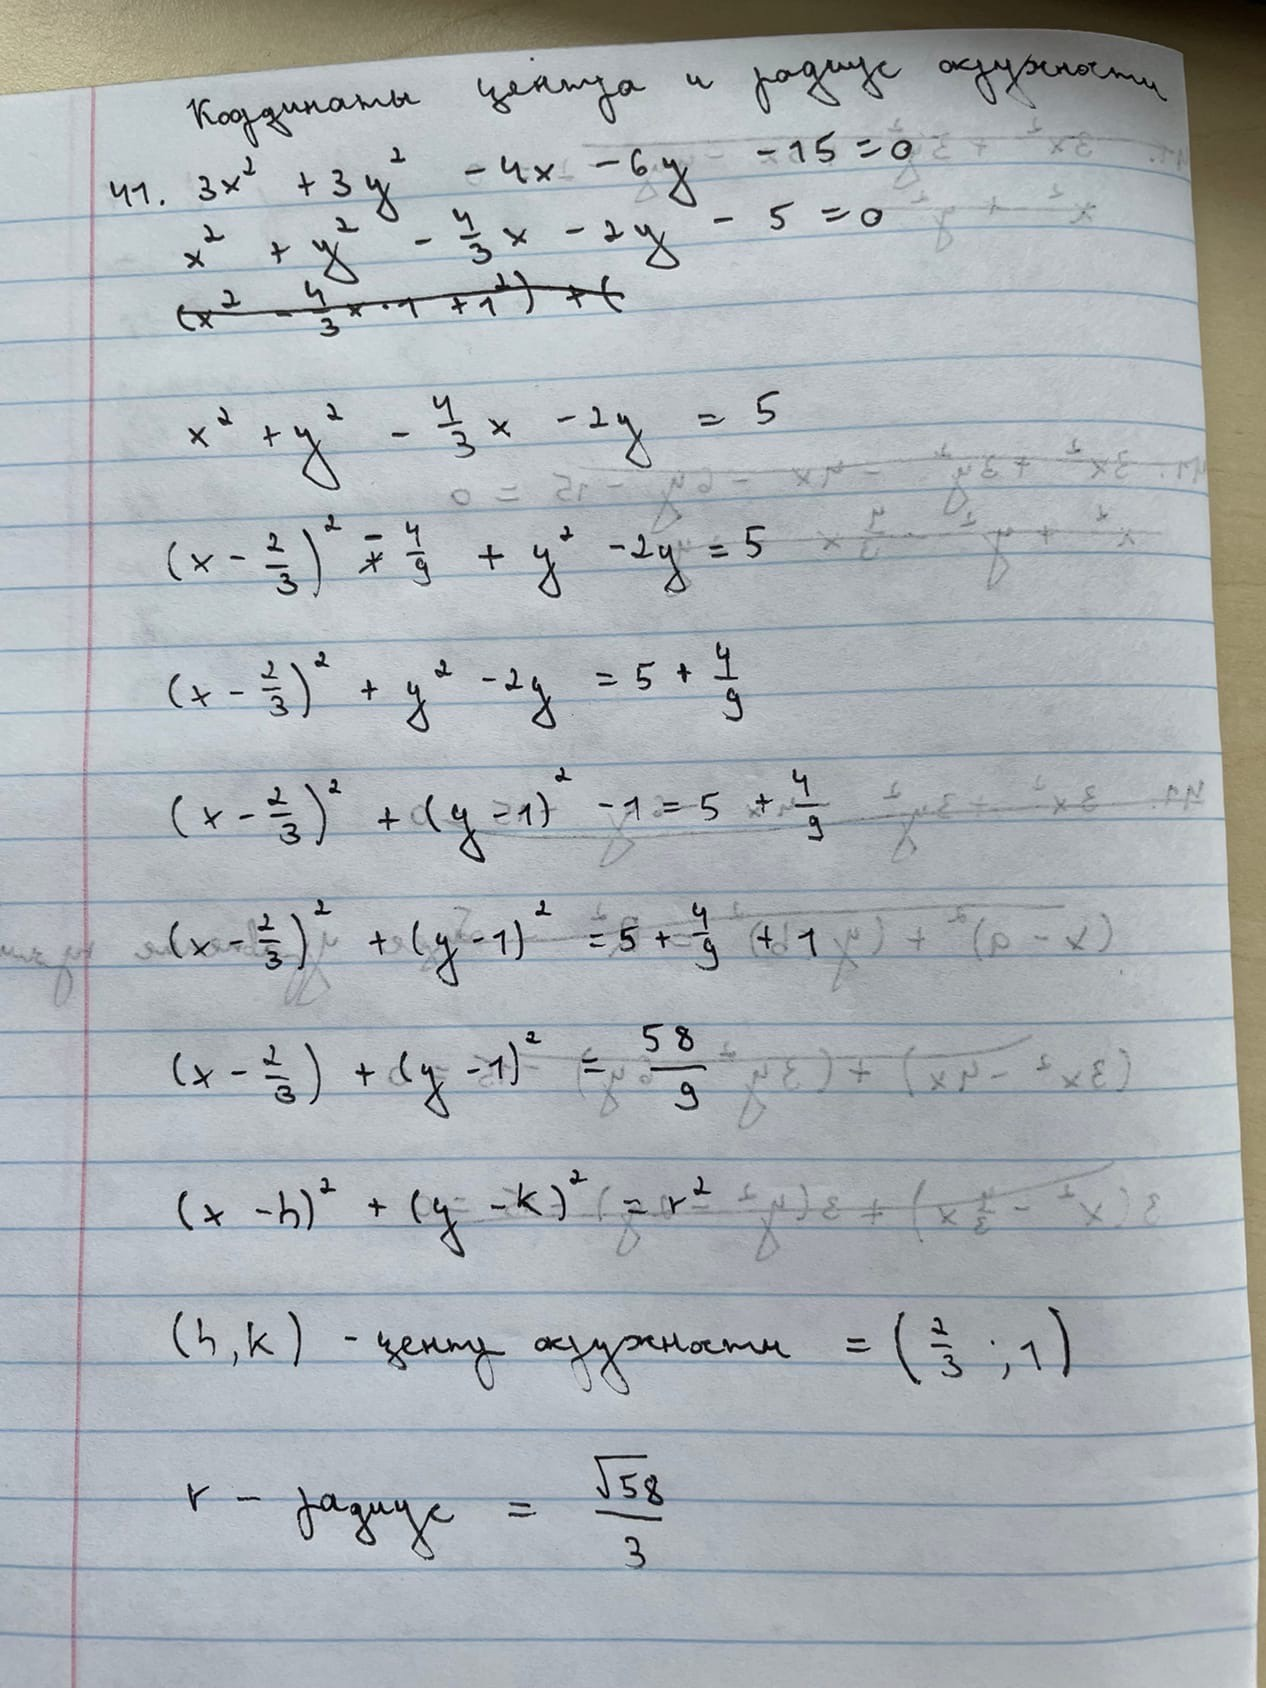 Координаты центра и радиус окружности
41. 3x² + 3y² - 4x - 6y - 15 = 0
x² + y² - 4/3 x - 2y - 5 = 0
(x² - 4/3 x · 1 + 1²) + (
x² + y² - 4/3 x - 2y = 5
(x - 2/3)² - 4/9 + y² - 2y = 5
(x - 2/3)² + y² - 2y = 5 + 4/9
(x - 2/3)² + (y - 1)² - 1 = 5 + 4/9
(x - 2/3)² + (y - 1)² = 5 + 4/9 + 1
(x - 2/3) + (y - 1)² = 58/9
(x - h)² + (y - k)² = r²
(h, k) - центр окружности = (2/3 ; 1)
r - радиус = √58/3